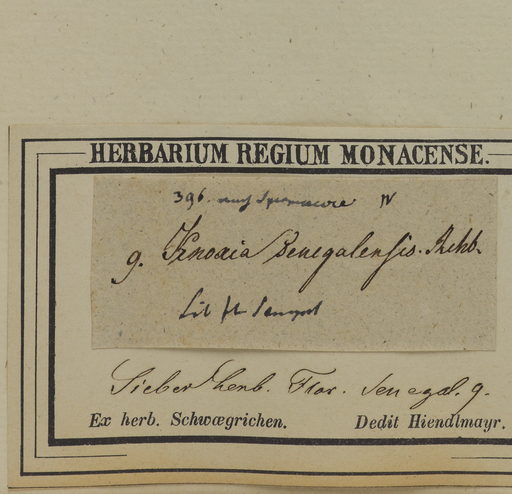 HERBARIUM REGIUM MONACENSE.
396. IV
9. Knoxia Senegalensis. Rchb.
Sieber herb. Flor. Senegal. 9.
Ex herb. Schwægrichen. Dedit Hiendlmayr.